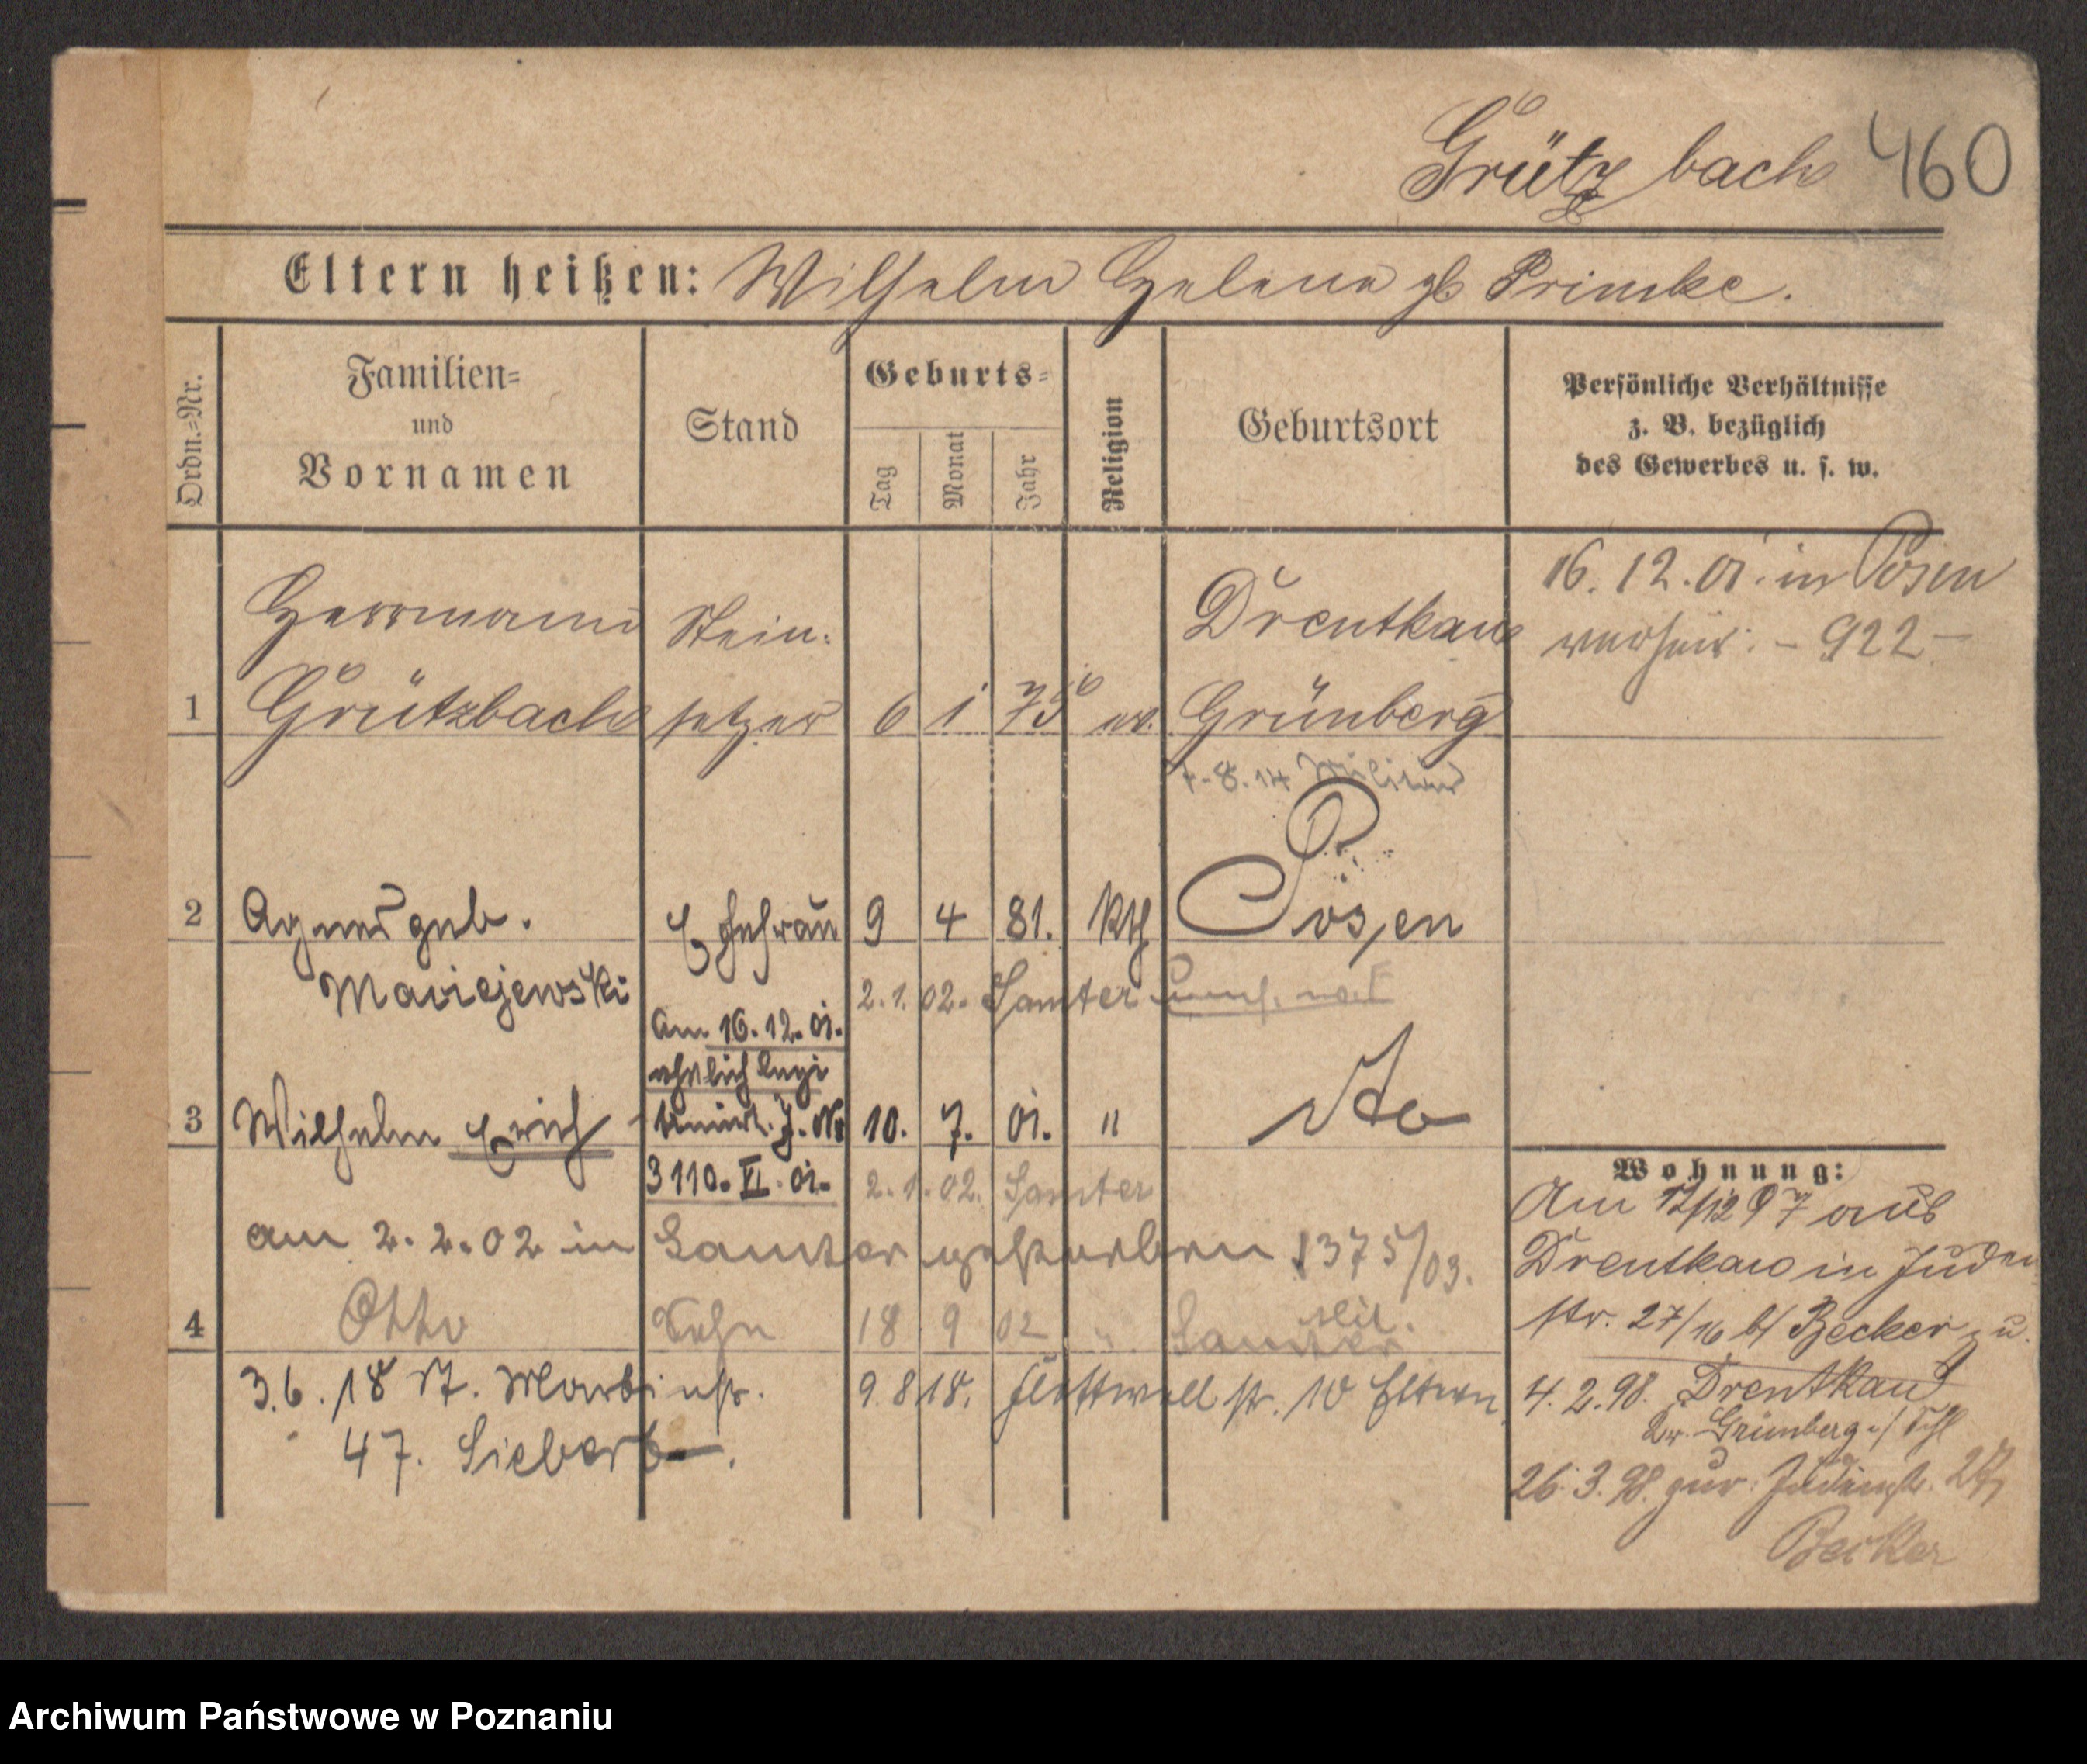 Grützbach 460
Eltern heißen: Wilhelm Helene gb Primke.
Ordn.=Nr.
Familien=
und
Vornamen
Stand
Geburts=
Tag
Monat
Jahr
Religion
Geburtsort
Persönliche Verhältnisse
z. B. bezüglich
des Gewerbes u. s. w.
Herrmann Stein- Drentkau
1 Grützbach setzer 6 1 75 ev. Grünberg
16. 12. 01. in Posen
verheir. - 922 -
4-8.14 Militär
2 Agnes geb. Ehefrau 9 4 81. Kth Posen
Maciejewski
2.1.02. Samter
Am 16.12.01.
ehelich legi
timirt. J. No
3110. VI. 01.
3 Wilhelm Erich 10. 7. 01. " dto
2.1.02. Samter
am 2.2.02 in Samter gestorben 1375/03.
4 Otto Sohn 18 9 02 " Samter
Mil.
3.6.18 St. Martinstr. 9.8.18. Flottwellstr. 10 Eltern
47. Siebert.
Wohnung:
Am 12/12 97 aus
Drentkau in Juden
str. 27/16 b/ Becker u.
4.2.98. Drentkau
Kr. Grünberg i/ Schl
26.3.98. zur. Judenstr. 27,
Becker
Archiwum Państwowe w Poznaniu